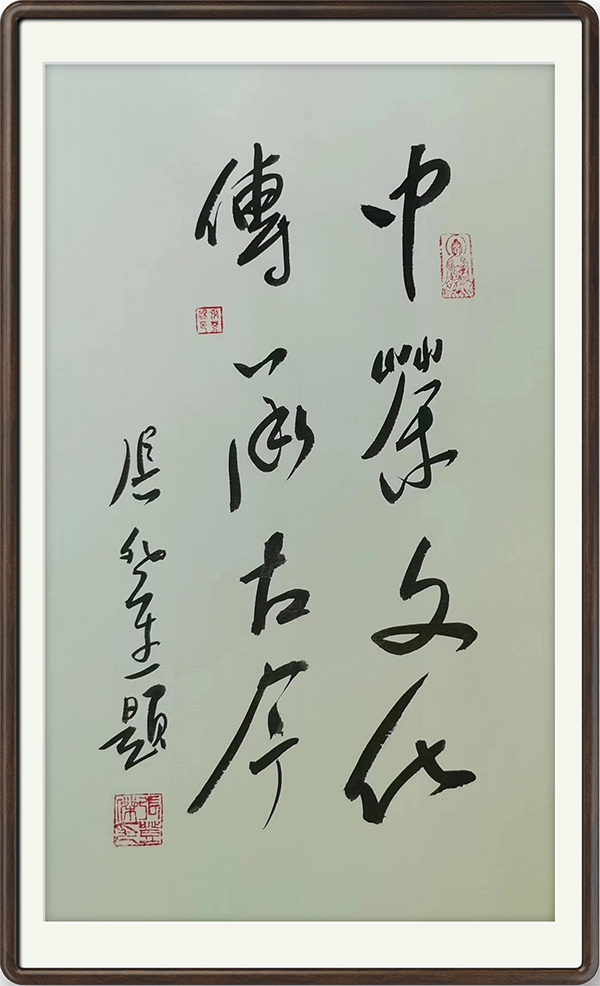 中華文化
傳承古今
題